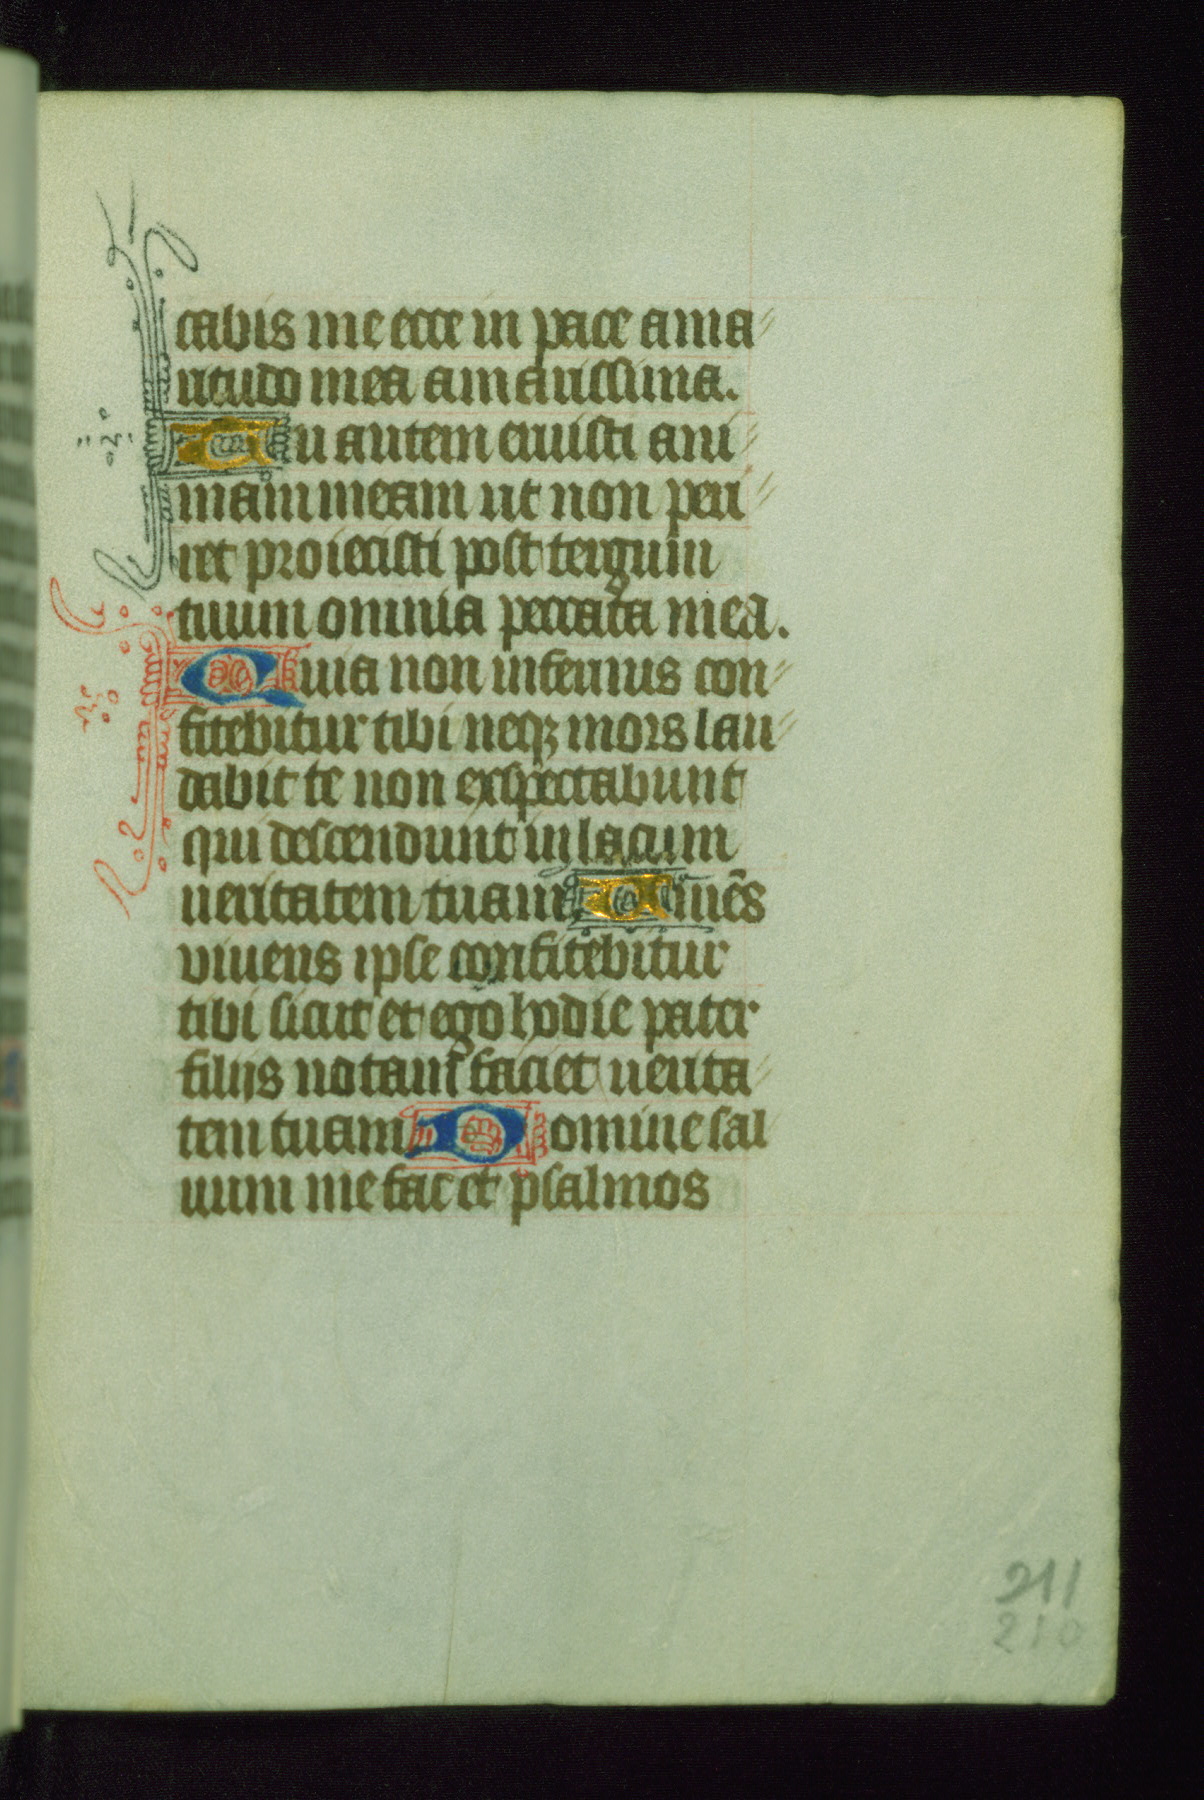 cabis me ecce in pace ama
ritudo mea amarissima.
Tu autem eruisti ani
mam meam ut non peri
ret proiecisti post tergum
tuum omnia peccata mea.
Quia non infernus con
fitebitur tibi neqꝫ mors lau
dabit te non exspectabunt
qui descendunt in lacum
ueritatem tuam Viuēs
viuens ipse confitebitur
tibi sicut et ego hodie pater
filijs notam faciet uerita
tem tuam Domine sal
uum me fac et psalmos
211
210